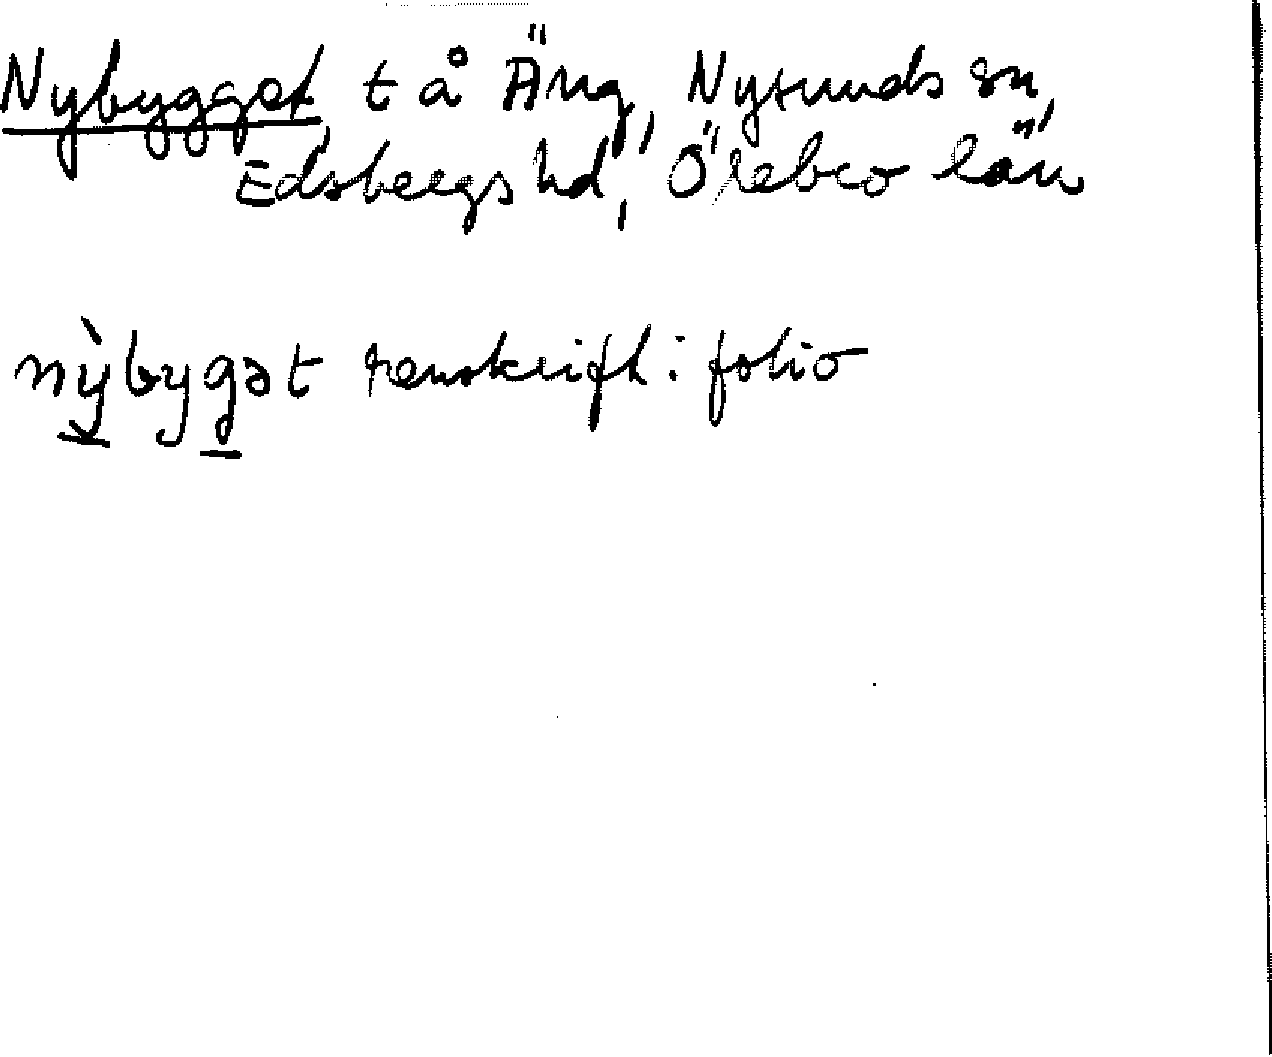 Nybygget t å Äng, Nysunds sn,
Edsbergs hd, Örebro län
nỳbygət renskrift i folio